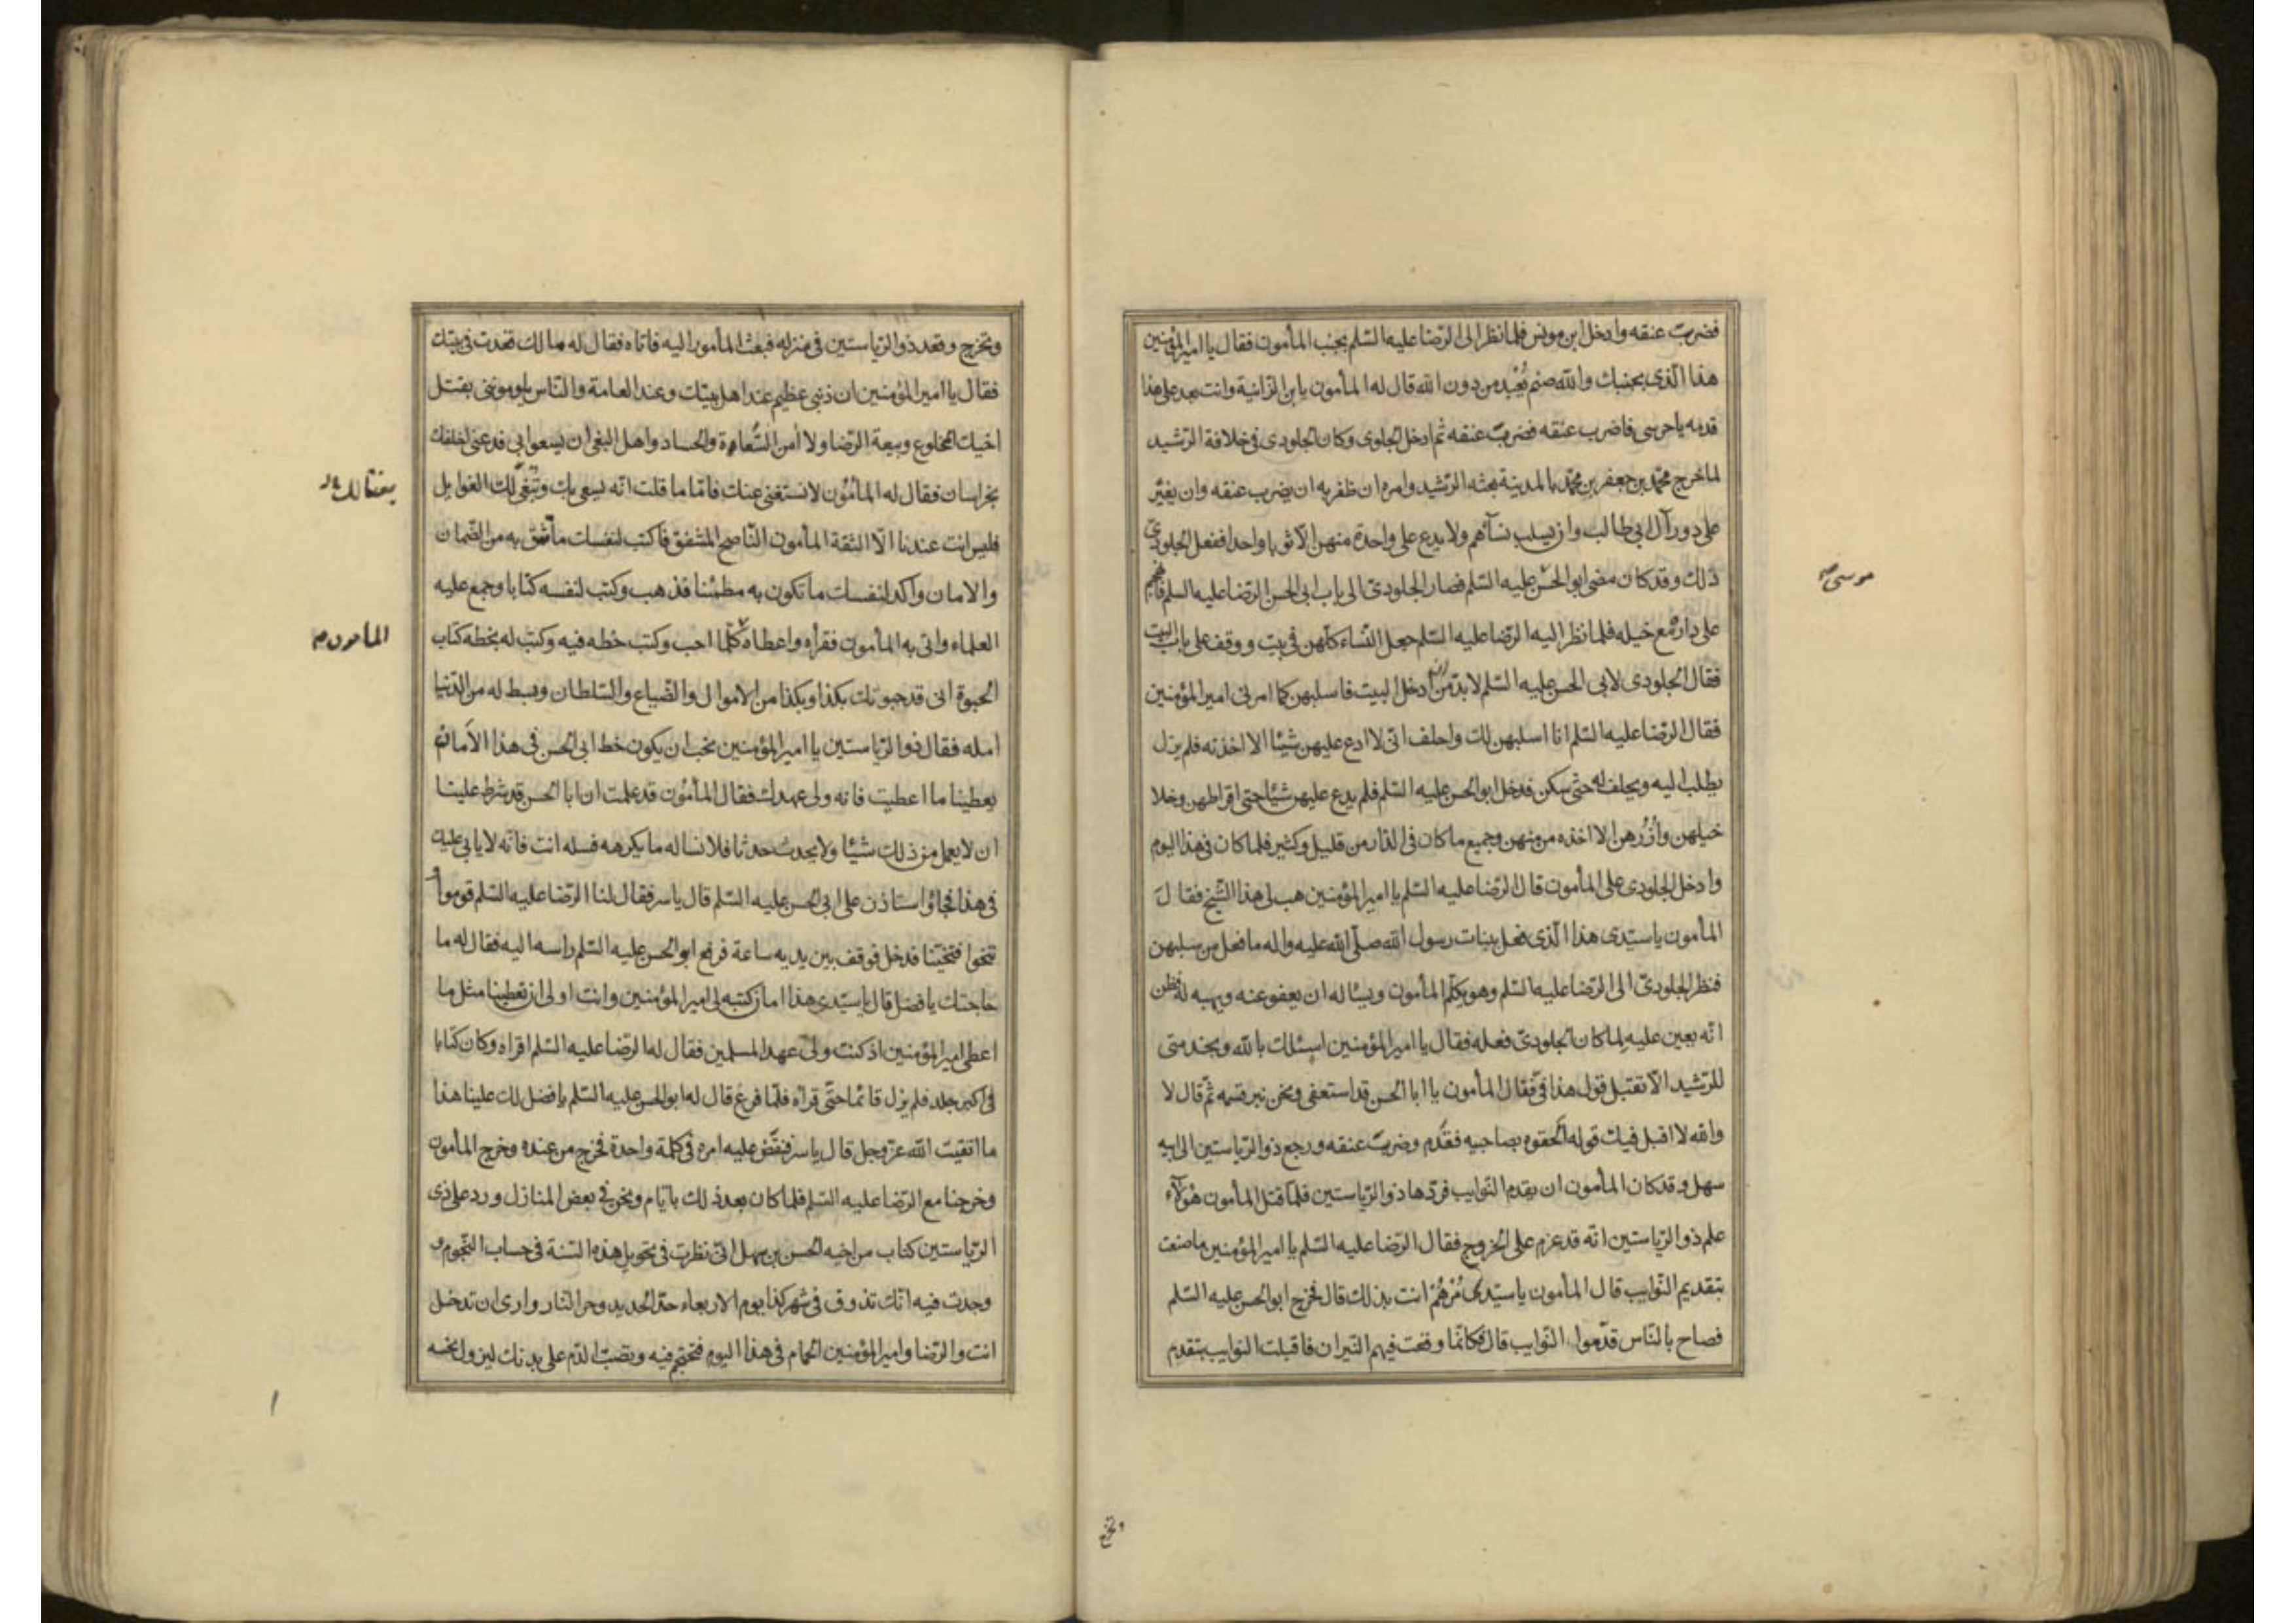 فضربت عنقه وادخل ابن مونس فلما نظر الى الرّضا عليه السّلم بجنب المأمون فقال يا امير المؤمنين
هذا الّذى بجنبك والله صنم يُعْبد من دون الله قال له المأمون يا بن الزّانية وانت بعد على هذا
قدمه يا حرسى فاضرب عنقه فضربت عنقه ثم ادخل الجلودى وكان الجلودى فى خلافة الرّشيد
لما خرج محمّد بن جعفر بن محمّد بالمدينة بعثه الرّشيد وامره ان ظفر به ان يضرب عنقه وان يغيّر
على دور آل ابى طالب وان يسلب نسآئهم ولا يدع على واحدة منهن الّا ثوبا واحدا ففعل الجلودىّ
ذلك وقد كان مضى ابو الحسن عليه السّلم فصار الجلودىّ الى باب ابى الحسن الرّضا عليه السلم فهجم
موسى صح
على داره مع خيله فلما نظر اليه الرّضا عليه السّلم جعل النّساء كلّهن فى بيت ووقف على باب البيت
فقال الجلودى لابى الحسن عليه السّلم لا بد من ان ادخل البيت فاسلبهن كما امرنى امير المؤمنين
فقال الرّضا عليه السّلم انا اسلبهن لك واحلف انّى لا ادع عليهن شيئا الا اخذته فلم يزل
يطلب اليه ويحلف له حتّى سكن فدخل ابو الحسن عليه السّلم فلم يدع عليهن شيئا حتى اقراطهن وخلا
خيلهن واُزُرهن الا اخذه من منهن وجميع ما كان فى الدّار من قليل وكثير فلما كان فى هذا اليوم
وادخل الجلودى على المأمون قال الرّضا عليه السّلم يا امير المؤمنين هب لى هذا الشّيخ فقال
المأمون يا سيّدى هذا الّذى فعل ببنات رسول الله صلّى الله عليه واله ما فعل من سلبهن
فنظر الجلودىّ الى الرّضا عليه السّلم وهو يكلّم المأمون ويسئاله ان يعفو عنه ويهبه له فظن
انّه يعين عليه لما كان الجلودىّ فعله فقال يا امير المؤمنين اسئلك بالله وبخدمتى
للرّشيد الّا تقتبل قول هذا فىّ فقال المأمون يا ابا الحسن قد استعفى ونحن نبر قسمه ثمّ قال لا
والله لا اقبل فيك قوله الحقوه بصاحبيه فقدّم وضربت عنقه ورجع ذو الرّياستين الى ابيه
سهل وقد كان المأمون ان يقدم النّوايب فردّها ذو الرّياستين فلمّا قتل المأمون هؤلآء
علم ذو الرّياستين انّه قد عزم على الخروج فقال الرّضا عليه السّلم يا امير المؤمنين ما صنعت
بتقديم النّوايب قال المأمون يا سيّدى مُرْهُمْ انت بذلك قال فخرج ابو الحسن عليه السّلم
فصاح بالنّاس قدّموا النّوايب قال فكانّما وقعت فيهم النّيران فاقبلت النوايب بتقدم
وتخرج
وتخرج وقعد ذو الرّياستين فى منزله فبعث المأمون اليه فاتاه فقال له مالك قعدت فى بيتك
فقال يا امير المؤمنين ان ذنبى عظيم عند اهل بيتك وعند العامة والنّاس يلومونى بقتل
اخيك المخلوع وبيعة الرّضا ولا آمن السّعاة والحساد واهل البغى ان يسعوا بى فدعنى اخلفك
بخراسان فقال له المأمُون لا نستغنى عنك فامّا ما قلت انّه يسعى بك وتُبغى لك الغوايل
فليس انت عندنا الّا الثقة المأمون النّاصح المشفق فاكتب لنفسك ما تثق به من الضّمان
والامان واكد لنفسك ما تكون به مطمئنا فذهب وكتب لنفسه كتابا وجمع عليه
العلماء واتى به المأمون فقرأه واعطاه كلّما احب وكتب خطه فيه وكتب له بخطه كتاب
المأمون م
الحبوة انى قد حبوتك بكذا وبكذا من الاموال والضّياع والسّلطان وبسط له من الدّنيا
امله فقال ذو الرّياستين يا امير المؤمنين نحب ان يكون خط ابى الحسن فى هذا الأمان
يعطينا ما اعطيت فانه ولى عهدك فقال المأمُون قد علمت ان ابا الحسن قد شرط علينا
ان لا يعمل من ذلك شيئا ولا يحدث حدثا فلا نساله ما يكرهه فسله انت فانّه لا يابى عليك
فى هذا فجاؤا استاذن على ابى الحسن عليه السّلم قال ياسر فقال لنا الرّضا عليه السّلم قوموا
تنحّوا فتنحّينا فدخل فوقف بين يديه ساعة فرفع ابو الحسن عليه السّلم راسه اليه فقال له ما
حاجتك يا فضل قال يا سيّدى هذا امان كتبه لى امير المؤمنين وانت اولى ان تعطينا مثل ما
اعطى امير المؤمنين اذ كنت ولىّ عهد المسلمين فقال له الرّضا عليه السّلم اقراه وكان كتابا
فى اكبر جلد فلم يزل قائما حتّى قراه فلمّا فرغ قال له ابو الحسن عليه السّلم يا فضل لك علينا هذا
ما اتقيت الله عزّ وجل قال ياسر فنقّض عليه امره فى كلمة واحدة فخرج من عنده وخرج المأمون
وخرجنا مع الرّضا عليه السّلم فلما كان بعد ذلك بايّام ونحن فى بعض المنازل ورد على ذى
الرّياستين كتاب من اخيه الحسن بن سهل انّى نظرت فى تحويل هذه السّنة فى حساب النّجوم و
وجدت فيه انّك تذوق فى شهر كذا يوم الاربعاء حدّ الحديد وحر النّار وارى ان تدخل
انت والرّضا وامير المؤمنين الحمام فى هذا اليوم فتحتجم فيه وتصبّ الدّم على بدنك ليزول نحسه